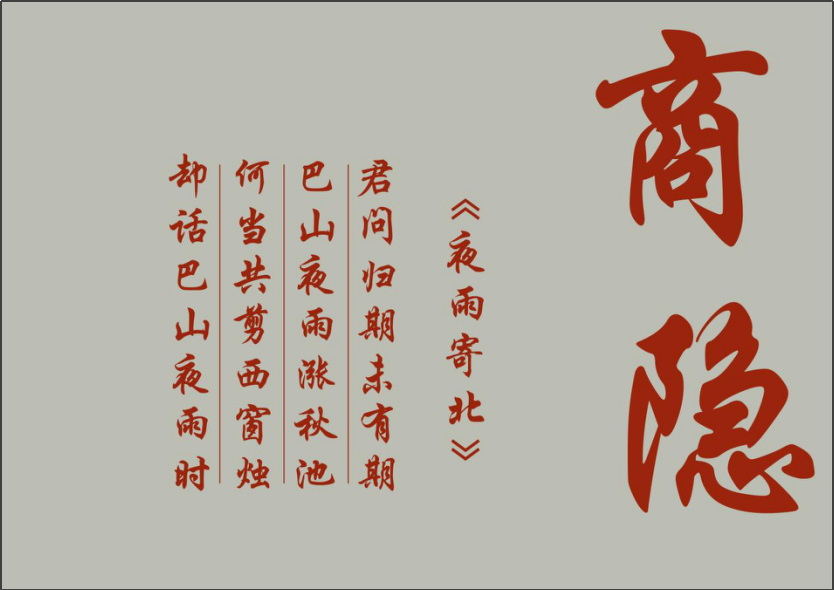 商隐
《夜雨寄北》
君问归期未有期
巴山夜雨涨秋池
何当共剪西窗烛
却话巴山夜雨时